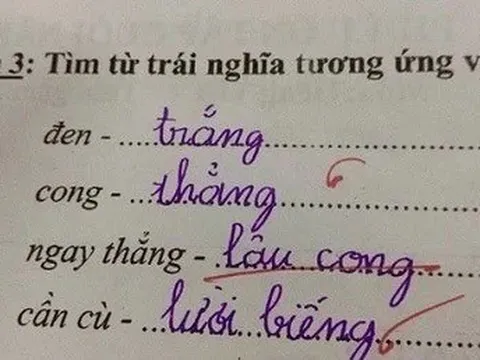 3: Tìm từ trái nghĩa tương ứng v
đen - ......trắng..............
cong - ...thẳng..............
ngay thẳng - .lâu cong.....
cần cù - ....lười biếng........